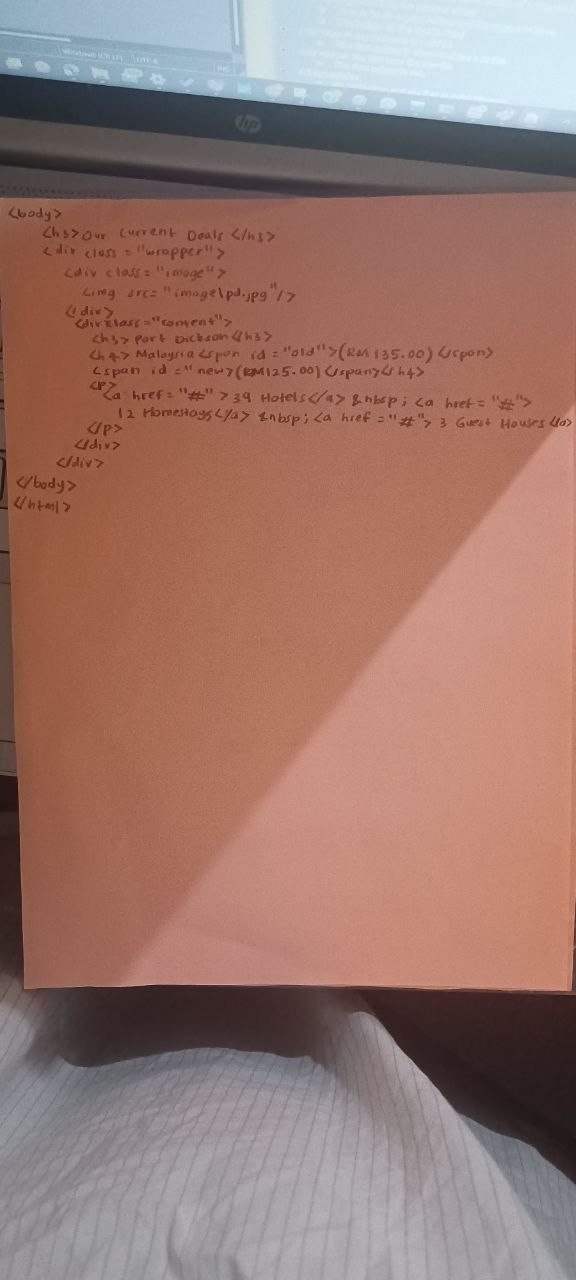 Windows (CR LF)
UTF-8
hp
<body>
<h3>Our Current Deals </h3>
<div class = "wrapper">
<div class = "image">
<img src= "image\pd.jpg"/>
</div>
<div class="content">
<h3> Port Dickson </h3>
<h4> Malaysia <span id = "old">(RM 135.00) </span>
<span id = "new>(RM125.00) </span></h4>
<p>
<a href = "#" > 39 Hotels</a> &nbsp; <a href = "#">
12 Homestays</a> &nbsp; <a href = "#"> 3 Guest Houses </a>
</p>
</div>
</div>
</body>
</html>